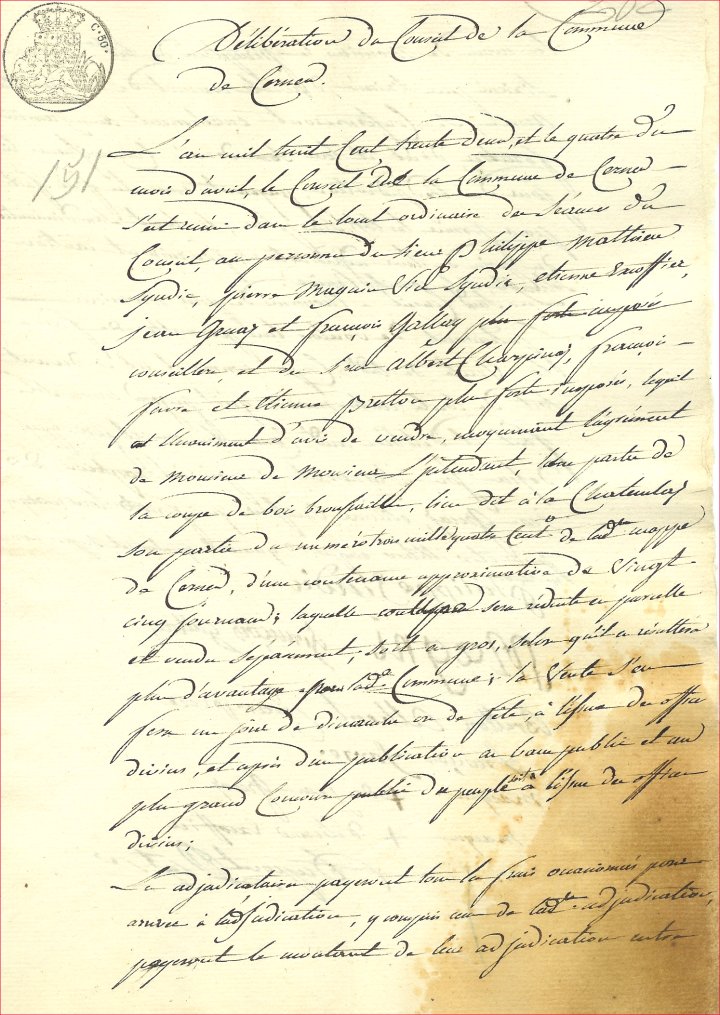 C. 80.
Délibération du Conseil de la Commune
de Cernex.
151
L'an mil huit Cent trente deux, et le quatre du
mois d'avril, le Conseil De la Commune de Cernex
s'est réuni dans le local ordinaire des séances du
Conseil, au personnes du sieur Philippe Mathieu
Syndic, pierre Magnin Vice Syndic, etienne Excoffier,
jean Gruaz et françois Gallay plus forts imposés
conseillers, et des srs Albert Charpine, françois
favre et Etienne Bretton plus forts imposés, lequel
est Unanimement d'avis de vendre, moyennant l'agrément
de Monsieur de Monsieur L'intendant, Une partie de
la coupe de bois broussaille, lieu dit à la
sou partie du numéro trois mille quatre Cent de ladte mappe
de Cernex, d'une contenance approximative de Vingt
cinq journaux; laquelle coupe sera réduite en parcelle
et vendu separement, soit en gros, selon qu'il en résultera
plus d'avantage pour ladte Commune; la Vente s'en
fera un jour de dimanche ou de fête, à l'issue des offices
divins, et après due publication au banc public et au
plus grand Concours public du peuple soit à l'issue des offices
divins;
Les adjudicataires payeront tous les frais occasionnés pour
arriver à l'adjudication, y compris ceux de ladte adjudication,
payeront le montant de leur adjudication entre